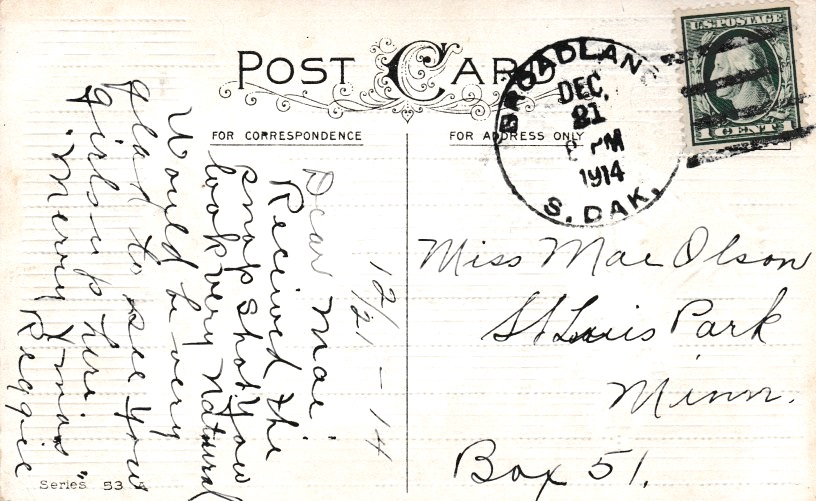 POST CARD
FOR CORRESPONDENCE
FOR ADDRESS ONLY
U.S. POSTAGE
1 CENT 1
BROADLAN
DEC.
21
PM
1914
S. DAK.
12/21 - 14
Dear Mae,
Recieved the
snap shot you
look very natural
Would be very
glad to see you
girls up here.
"Merry Xmas"
Reggie
Miss Mae Olson
St Luis Park
Minn.
Box 51.
Series 53 A